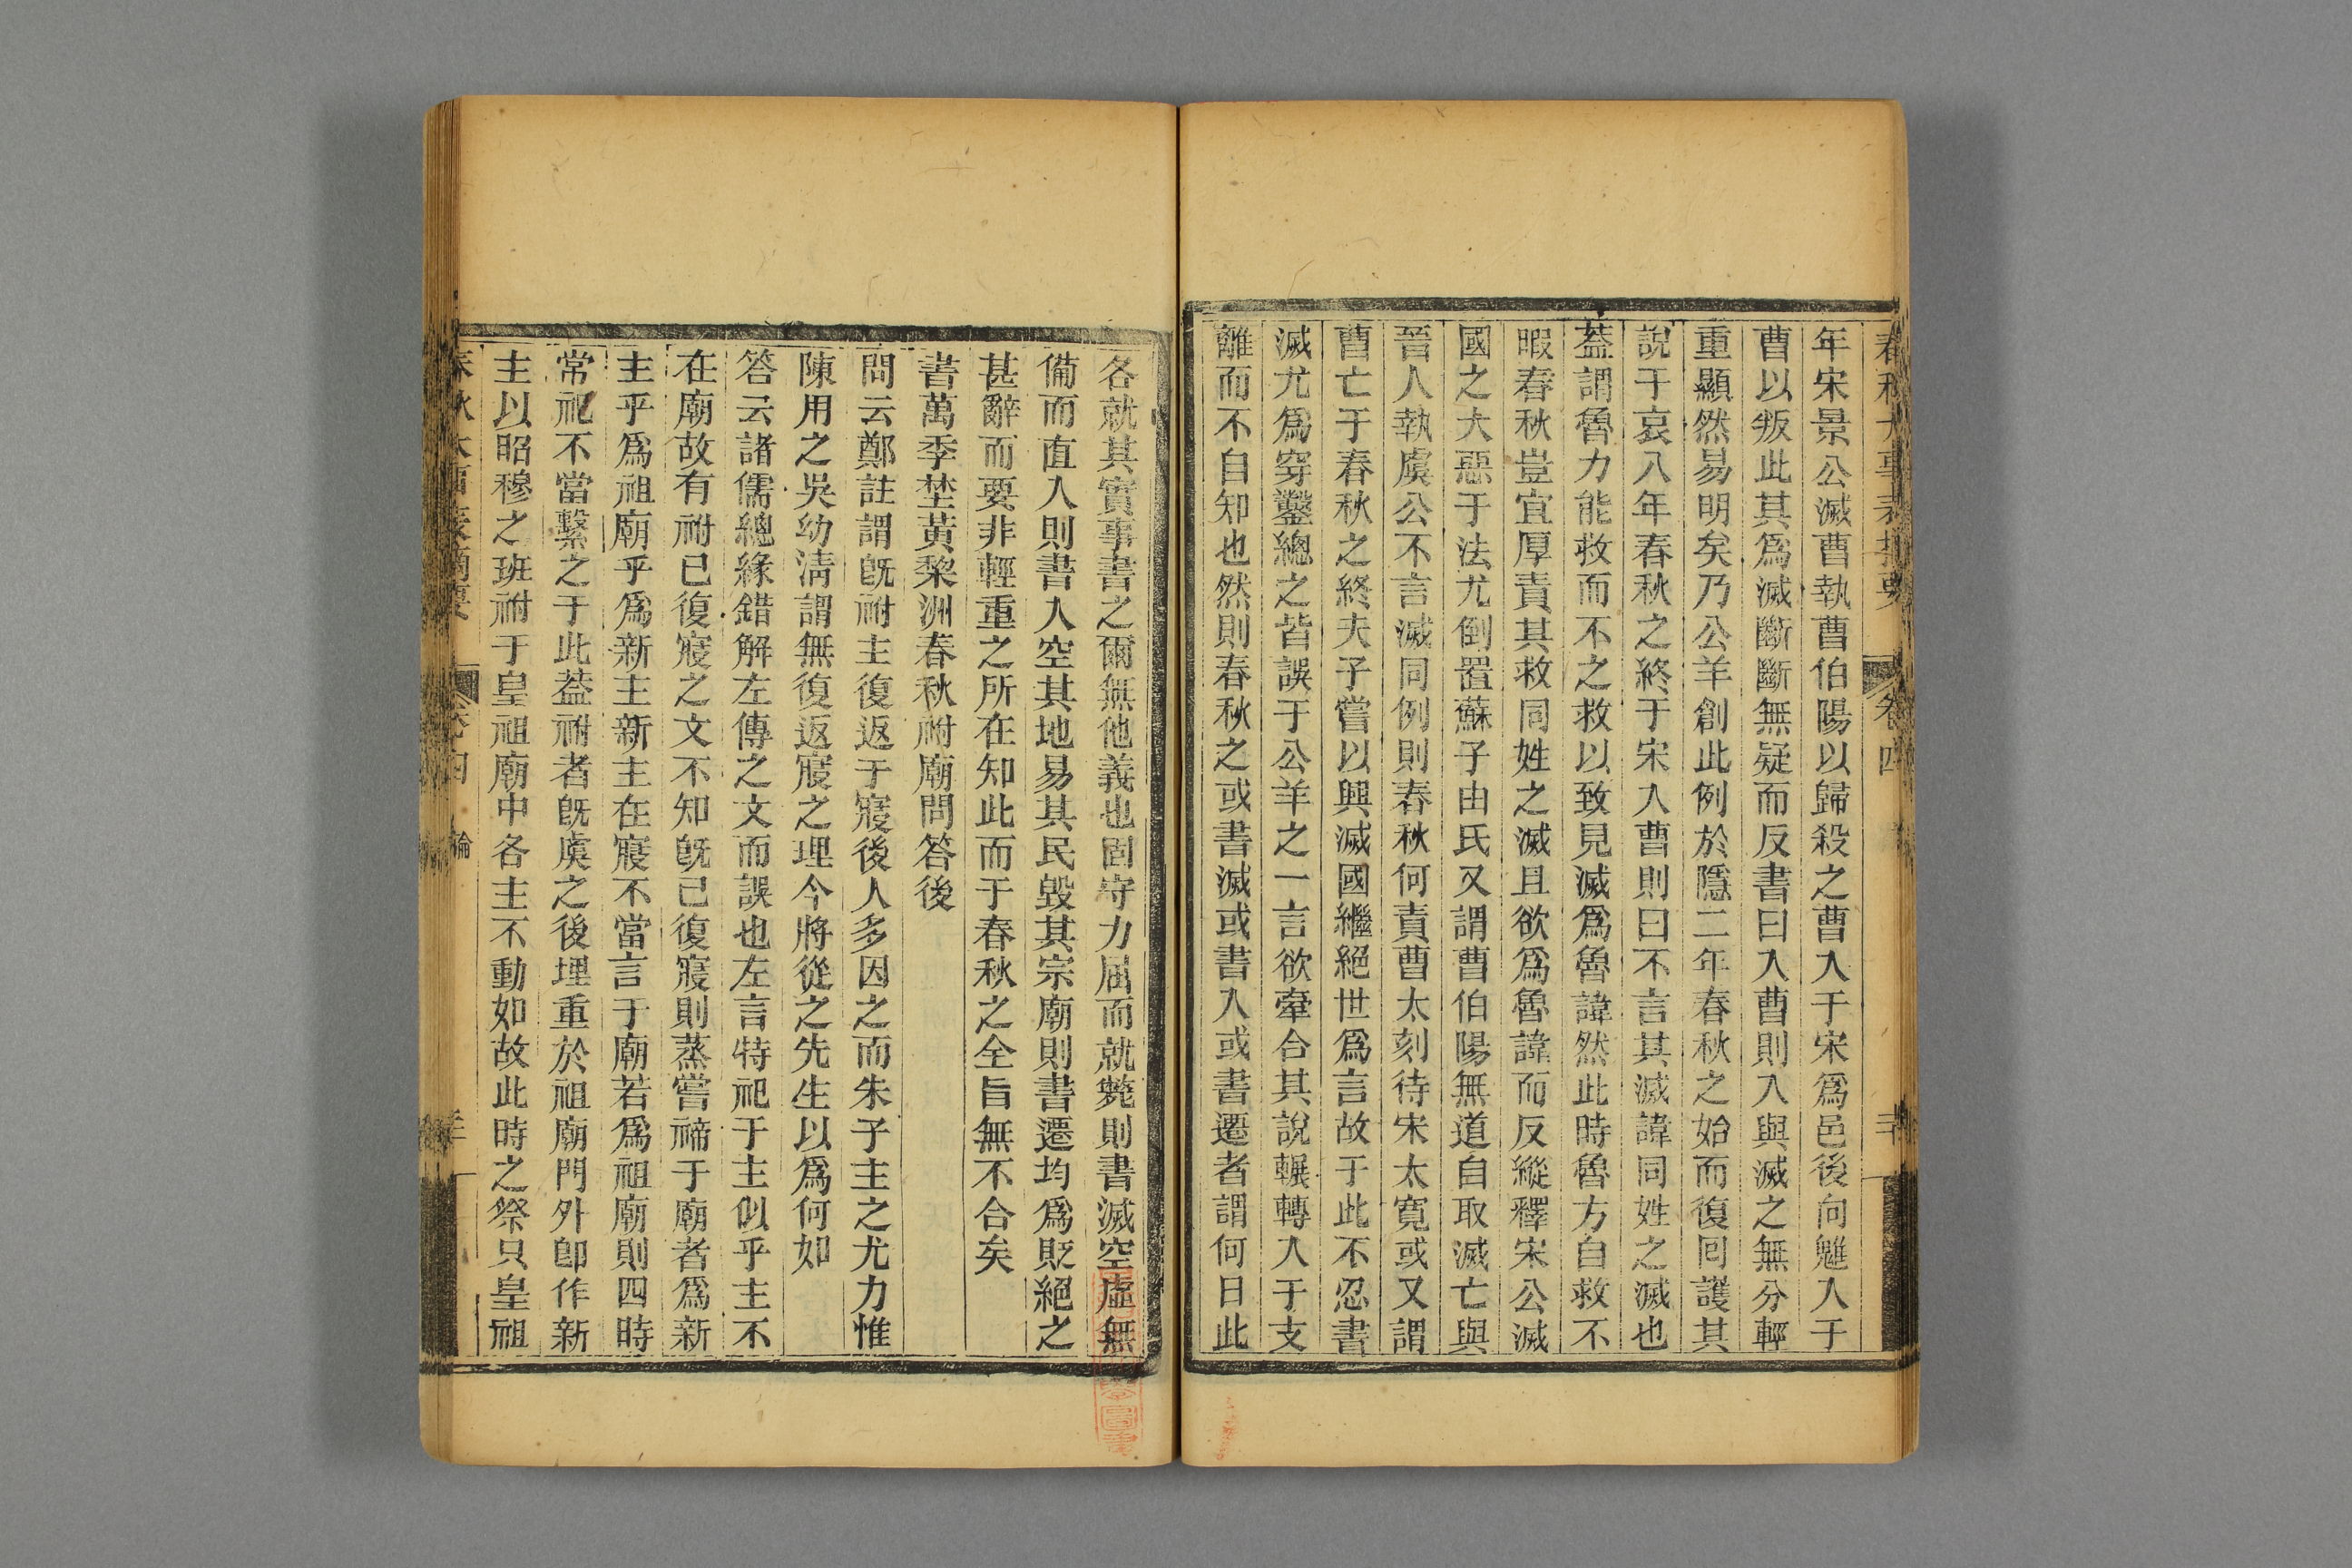 年宋景公滅曹執曹伯陽以歸殺之曹入于宋爲邑後向魋入于
曹以叛此其爲滅斷斷無疑而反書曰入曹則入與滅之無分輕
重顯然易明矣乃公羊創此例於隱二年春秋之始而復囘護其
說于哀八年春秋之終于宋入曹則曰不言其滅諱同姓之滅也
葢謂魯力能救而不之救以致見滅爲魯諱然此時魯方自救不
暇春秋豈宜厚責其救同姓之滅且欲爲魯諱而反縱釋宋公滅
國之大惡于法尤倒置蘇子由氏又謂曹伯陽無道自取滅亡與
晉人執虞公不言滅同例則春秋何責曹太刻待宋太寬或又謂
曹亡于春秋之終夫子嘗以興滅國繼絕世爲言故于此不忍書
滅尤爲穿鑿總之皆誤于公羊之一言欲牽合其說輾轉入于支
離而不自知也然則春秋之或書滅或書入或書遷者謂何曰此
各就其實事書之爾無他義也固守力屈而就斃則書滅空虛無
備而直入則書入空其地易其民毀其宗廟則書遷均爲貶絕之
甚辭而要非輕重之所在知此而于春秋之全旨無不合矣
書萬季埜黃棃洲春秋祔廟問答後
問云鄭註謂旣祔主復返于寢後人多因之而朱子主之尤力惟
陳用之吳幼淸謂無復返寢之理今將從之先生以爲何如
答云諸儒總緣錯解左傳之文而誤也左言特祀于主似乎主不
在廟故有祔已復寢之文不知旣已復寢則蒸嘗禘于廟者爲新
主乎爲祖廟乎爲新主新主在寢不當言于廟若爲祖廟則四時
常祀不當繫之于此葢祔者旣虞之後埋重於祖廟門外卽作新
主以昭穆之班祔于皇祖廟中各主不動如故此時之祭只皇祖